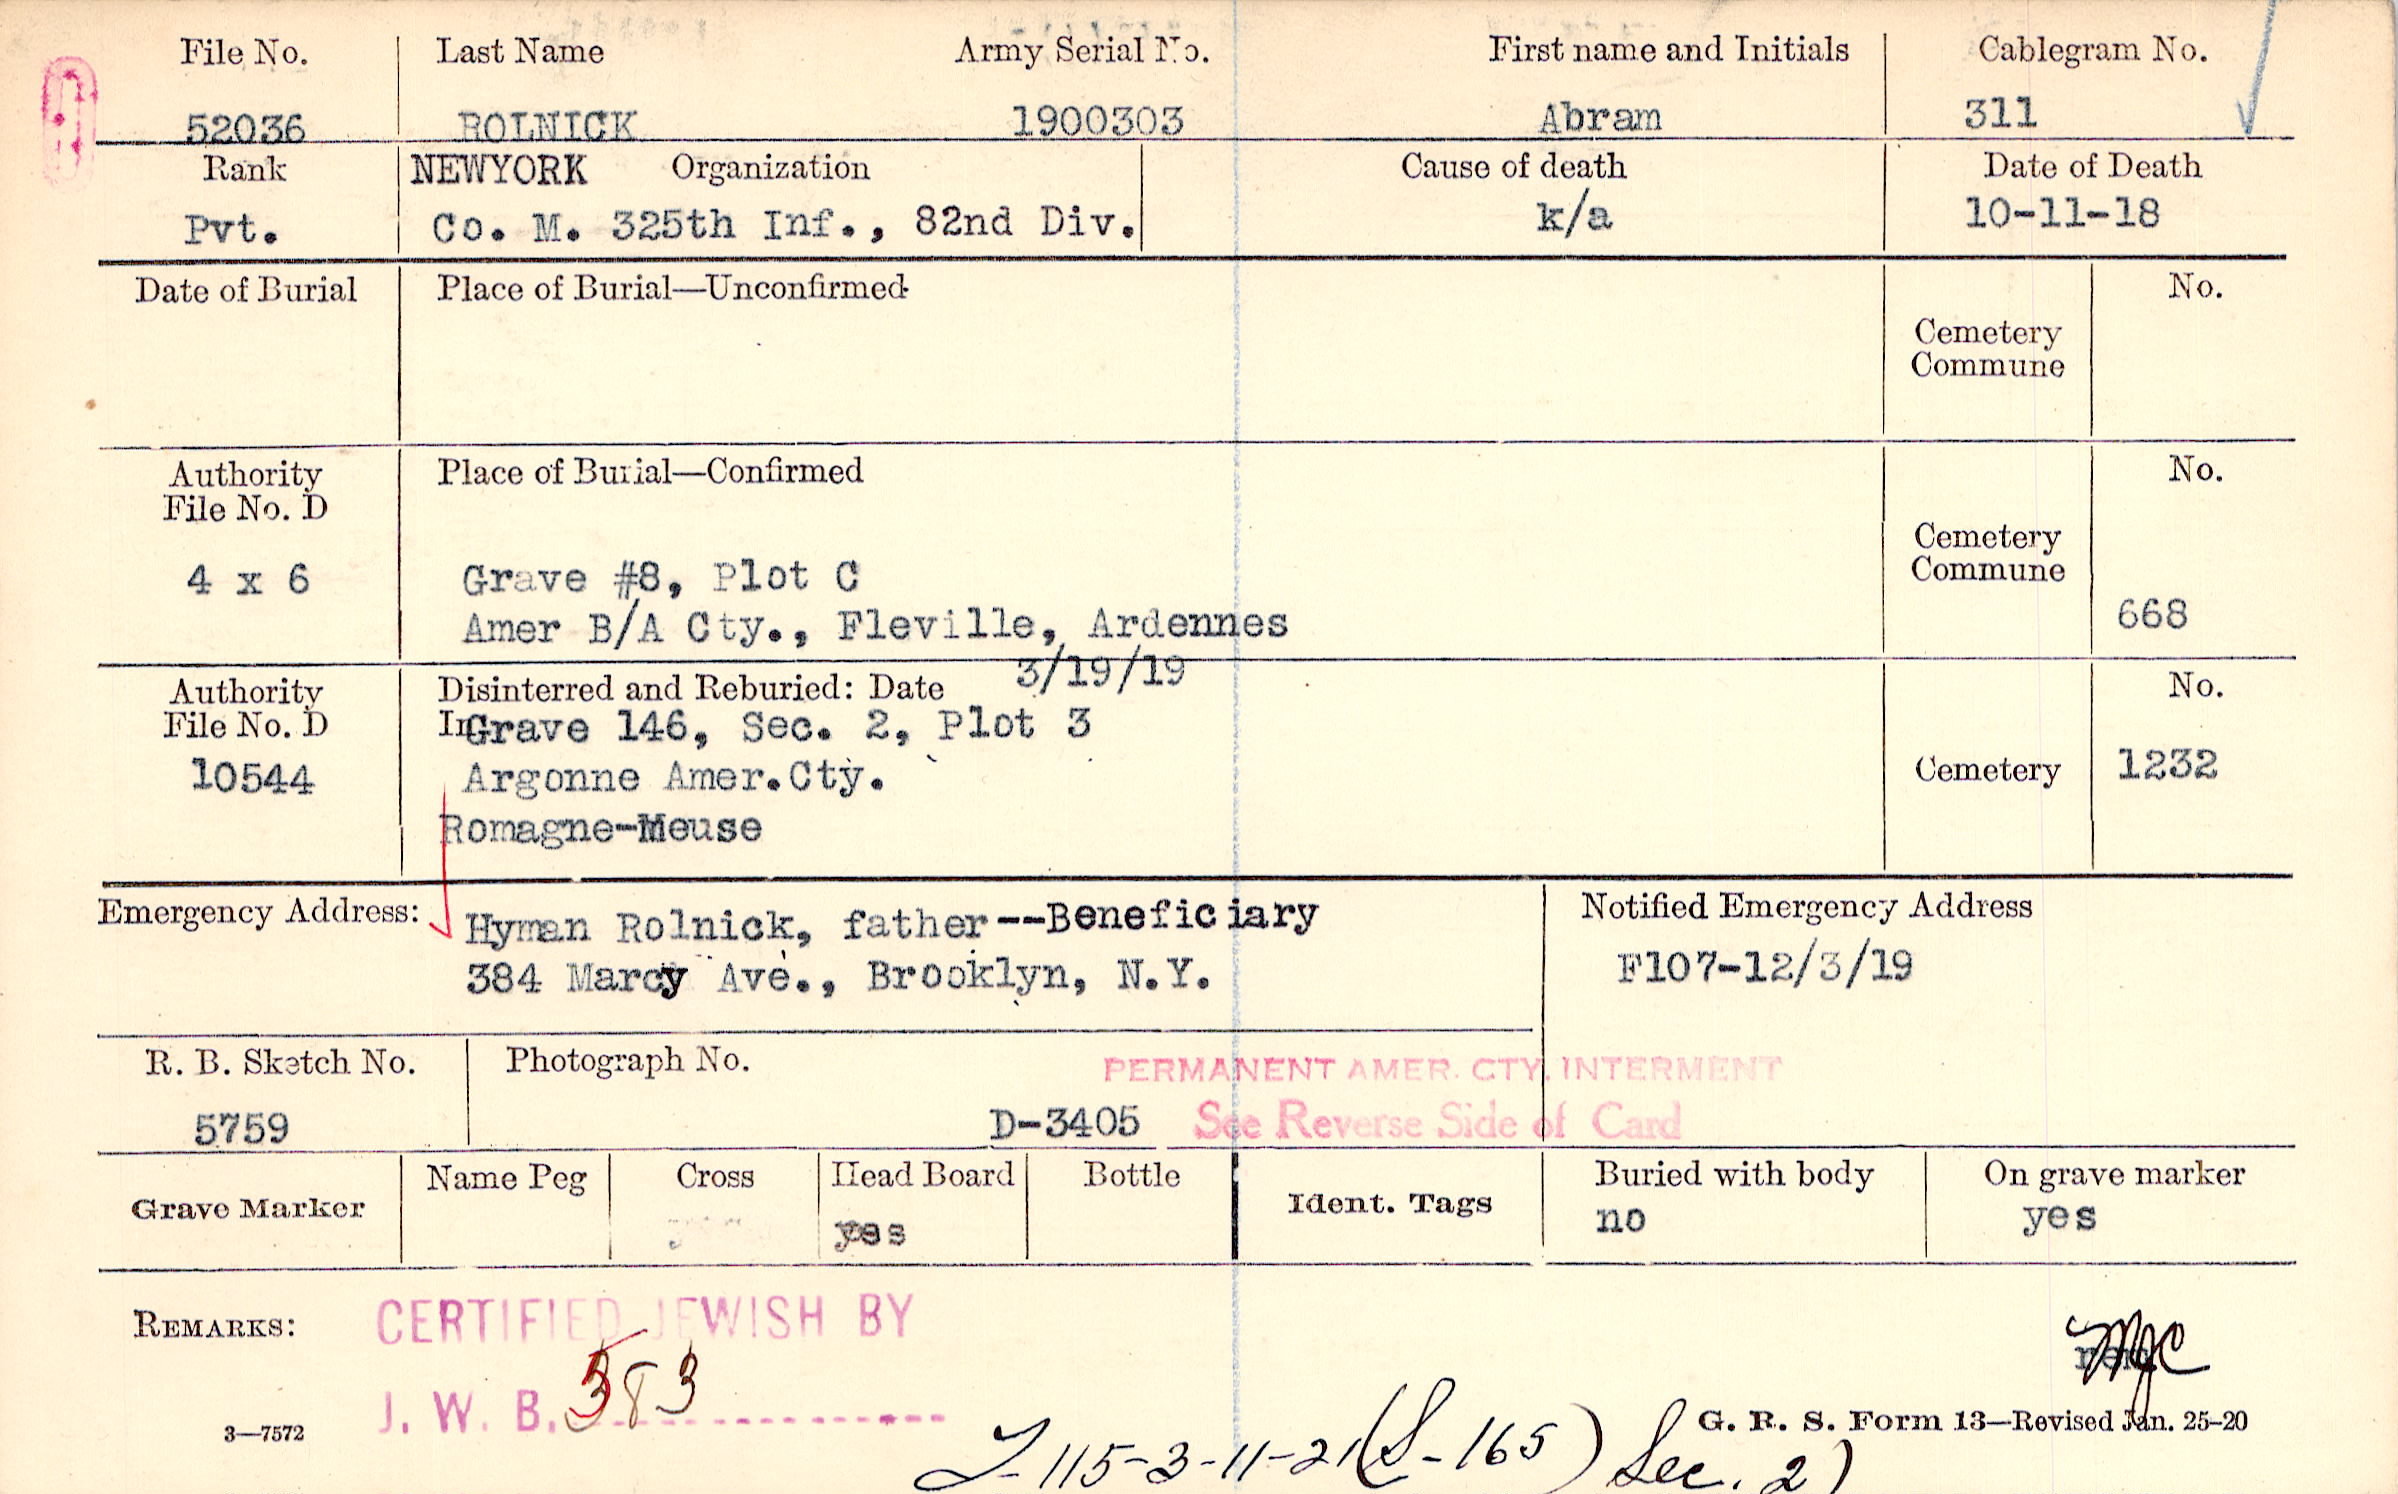 File No. Last Name Army Serial No. First name and Initials Cablegram No.
52036 ROLNICK 1900303 Abram 311
Rank NEWYORK Organization Cause of death Date of Death
Pvt. Co. M. 325th Inf., 82nd Div. k/a 10-11-18
Date of Burial Place of Burial—Unconfirmed No.
Cemetery
Commune
Authority Place of Burial—Confirmed No.
File No. D
Cemetery
Commune
4 x 6 Grave #8, Plot C
Amer B/A Cty., Fleville, Ardennes 668
3/19/19
Authority Disinterred and Reburied: Date No.
File No. D In Grave 146, Sec. 2, Plot 3
10544 Argonne Amer.Cty. Cemetery 1232
Romagne-Meuse
Emergency Address: Hyman Rolnick, father--Beneficiary Notified Emergency Address
384 Marcy Ave., Brooklyn, N.Y. F107-12/3/19
R. B. Sketch No. Photograph No. PERMANENT AMER. CTY. INTERMENT
5759 D-3405 See Reverse Side of Card
Name Peg Cross Head Board Bottle Buried with body On grave marker
Grave Marker yes Ident. Tags no yes
REMARKS: CERTIFIED JEWISH BY
J. W. B. 383
MJC
3—7572 G. R. S. Form 13—Revised Jan. 25-20
115-3-11-21 (S-165) Sec. 2)